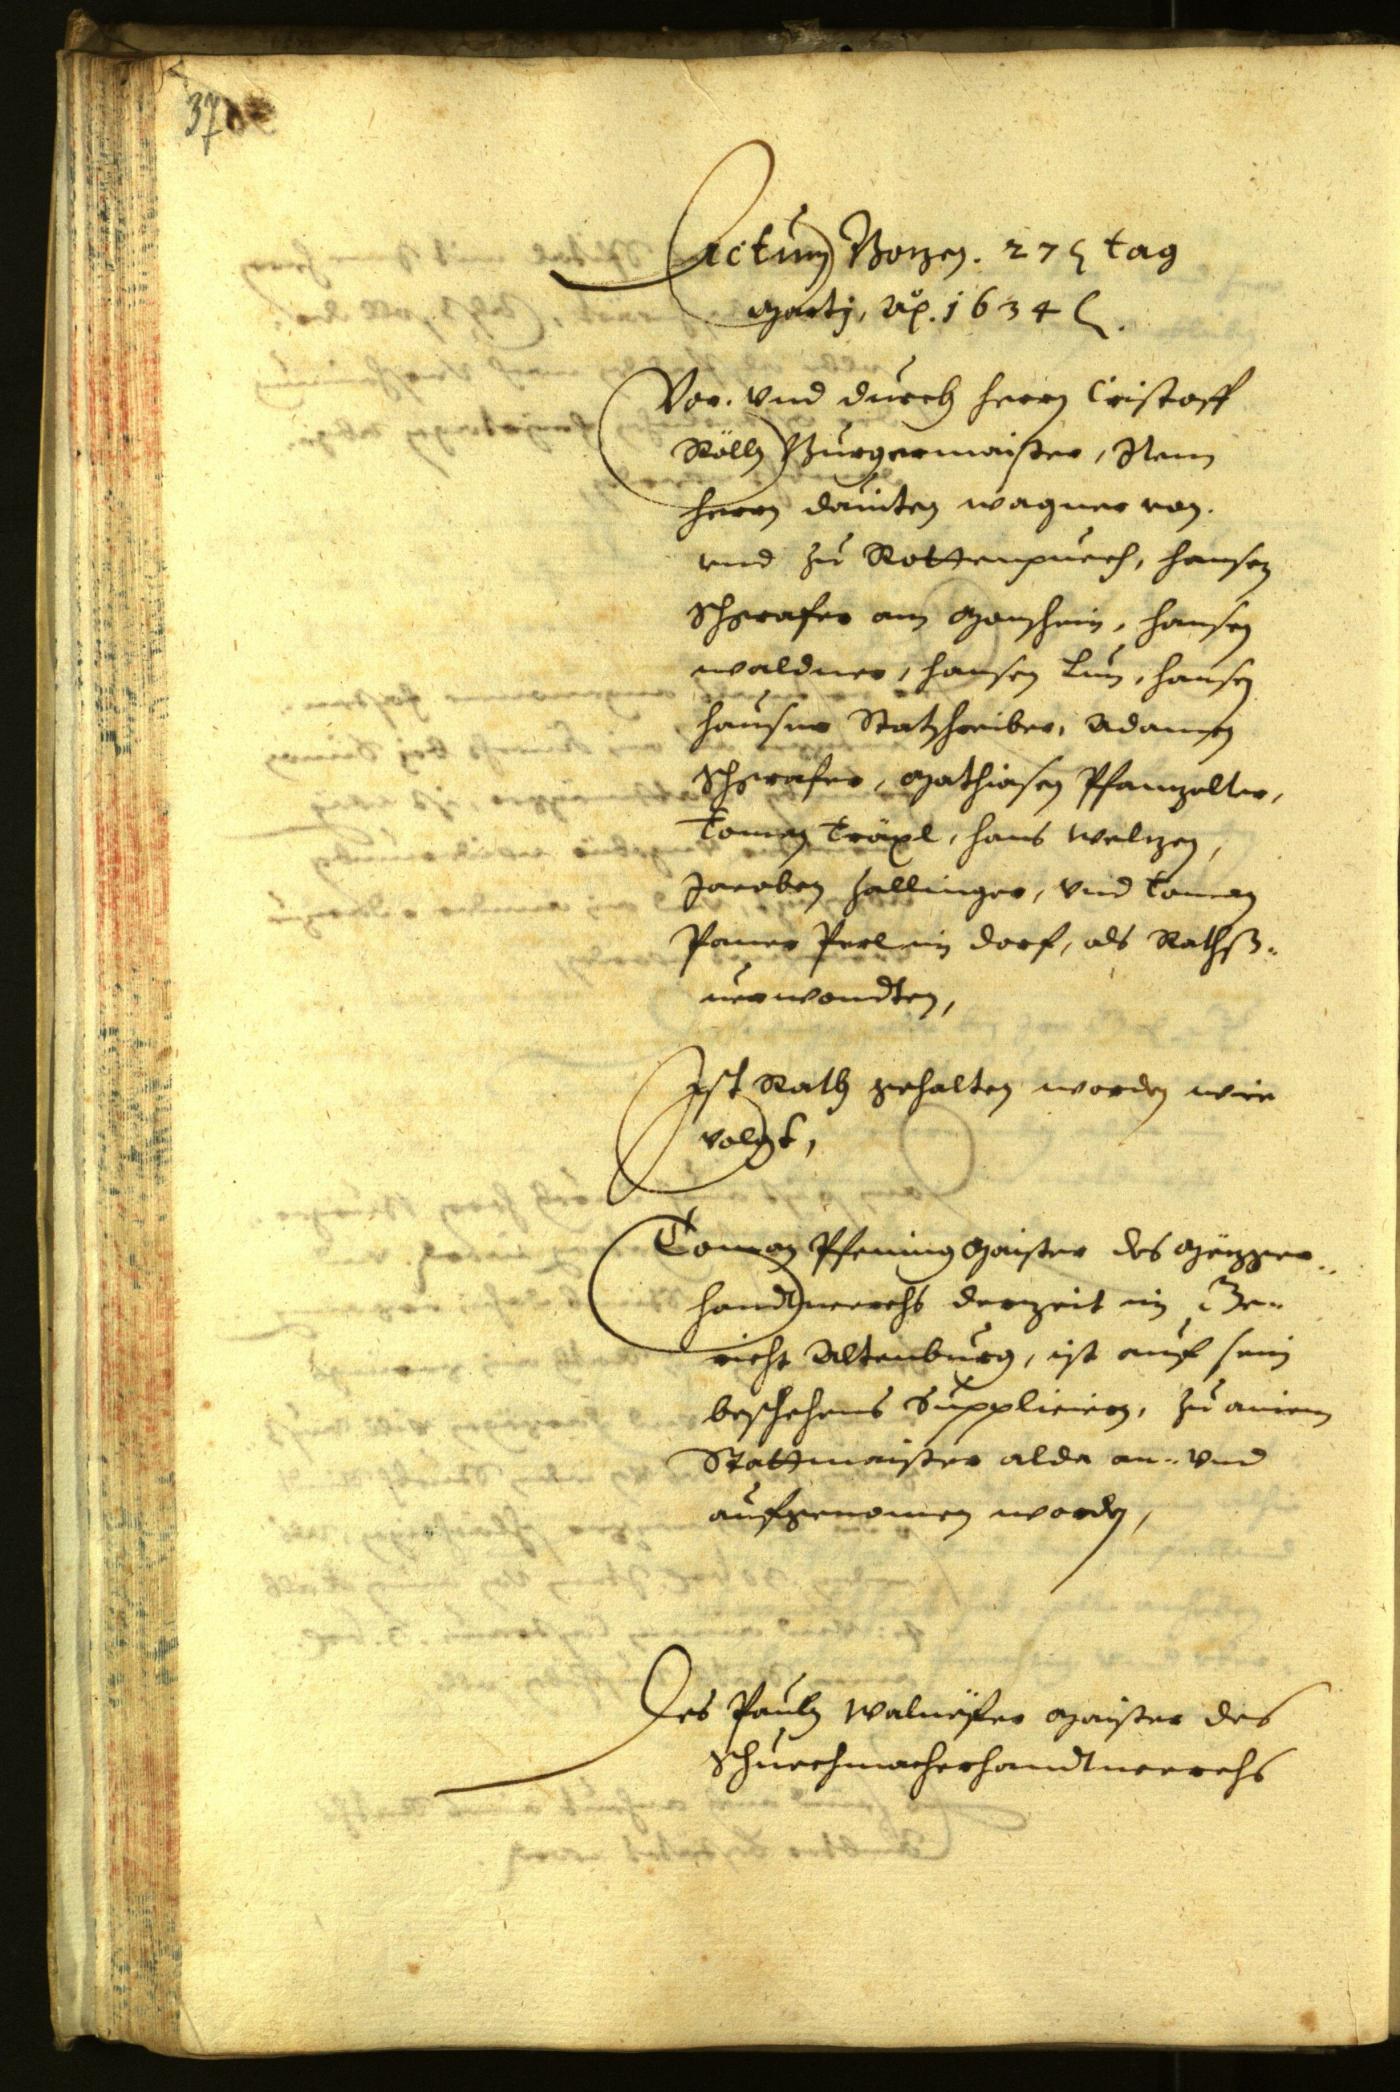 37
Actum Botzen. 27 tag
Martij, Ao. 1634.
Vor. vnd durch herrn Cristoff
Röllh Burgermaister, Item
herrn dauiten wagner von.
vnd zu Rottenpuech, hansen
Schgrafer am Ganshein, hansen
waldner, hansen Lun, hansen
hauser Statschreiber, Adamen
Schgrafer, Mathiasen Pfanzelter,
Toman Träxl, hans Weltzen,
Jacoben Hallinger, vnd Toman
Paner Perl im dorf, als Rathß-
uerwondten,
Ist Rath gehalten worden wie
volgt,
Toman Pfening Maister des Metzger-
handtwerchs derzeit in Ge-
richt Altenburg, ist auf sein
beschehens Supplicirn, zu ainem
Stattmaister alda an- vnd
aufgenomen worden,
Des Pauln Walneßer Maister des
Schuechmacherhandtwerchs